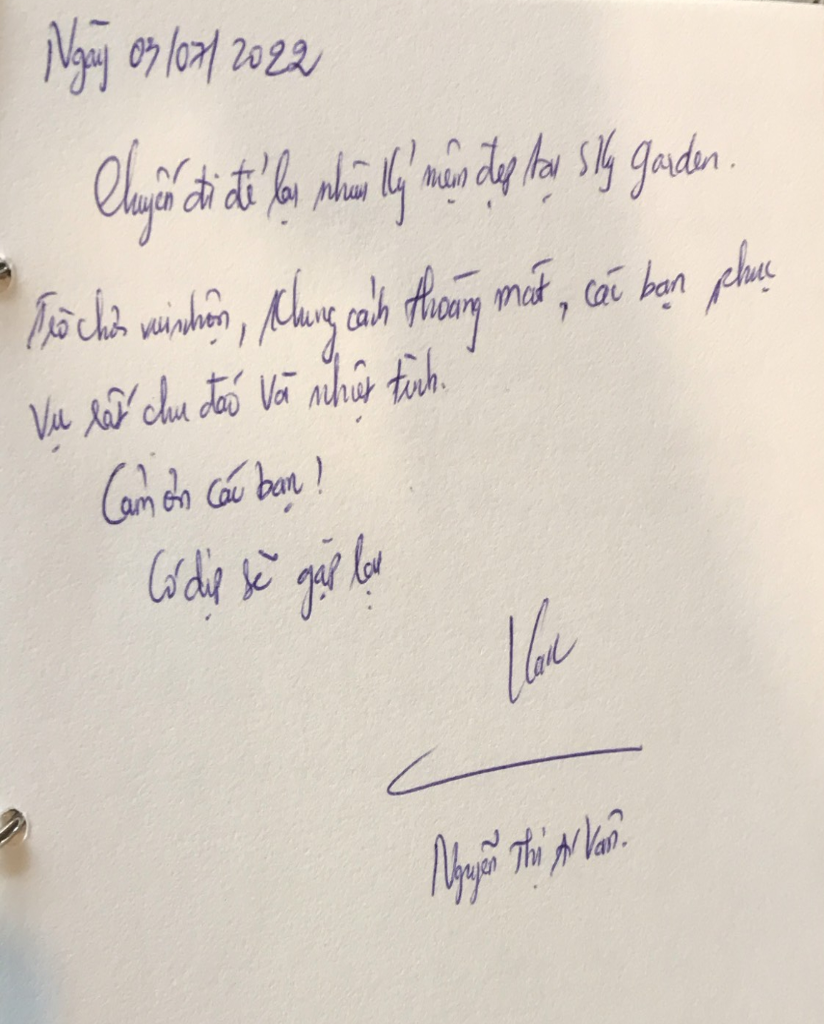 Ngày 03/07/2022
Chuyến đi để lại nhiều kỷ niệm đẹp tại Sky garden.
Trò chơi vui nhộn, khung cảnh thoáng mát, các bạn phục
vụ rất chu đáo và nhiệt tình.
Cảm ơn các bạn!
Có dịp sẽ gặp lại
Van
Nguyễn Thị Vân.